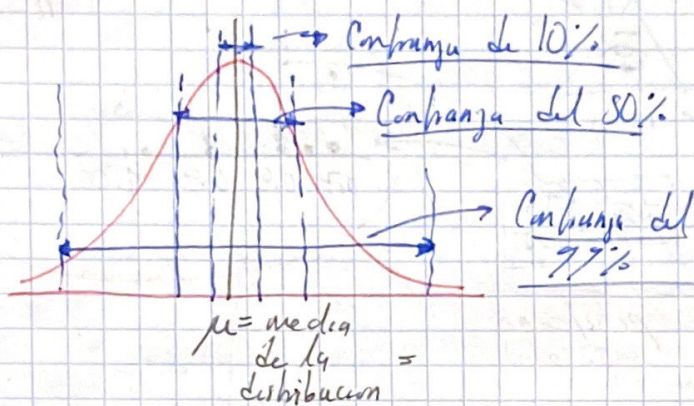 Confianza de 10%
Confianza del 50%
Confianza del
99%
μ = media
de la =
distribucion